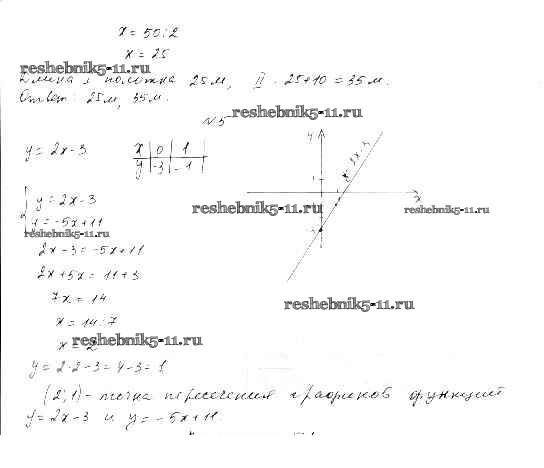 x = 50 : 2
x = 25
reshebnik5-11.ru
Длина I полотна 25м, II - 25+10 = 35м.
Ответ: 25м, 35м.
reshebnik5-11.ru
N5
y = 2x - 3
x 0 1
y -3 -1
y
y = 2x - 3
1
x
-3
y = 2x - 3
y = -5x + 11
reshebnik5-11.ru
reshebnik5-11.ru
reshebnik5-11.ru
2x - 3 = -5x + 11
2x + 5x = 11 + 3
7x = 14
reshebnik5-11.ru
x = 14 : 7
x = 2
reshebnik5-11.ru
y = 2·2-3 = 4-3 = 1
(2; 1) - точка пересечения графиков функций
y = 2x - 3 и y = -5x + 11.